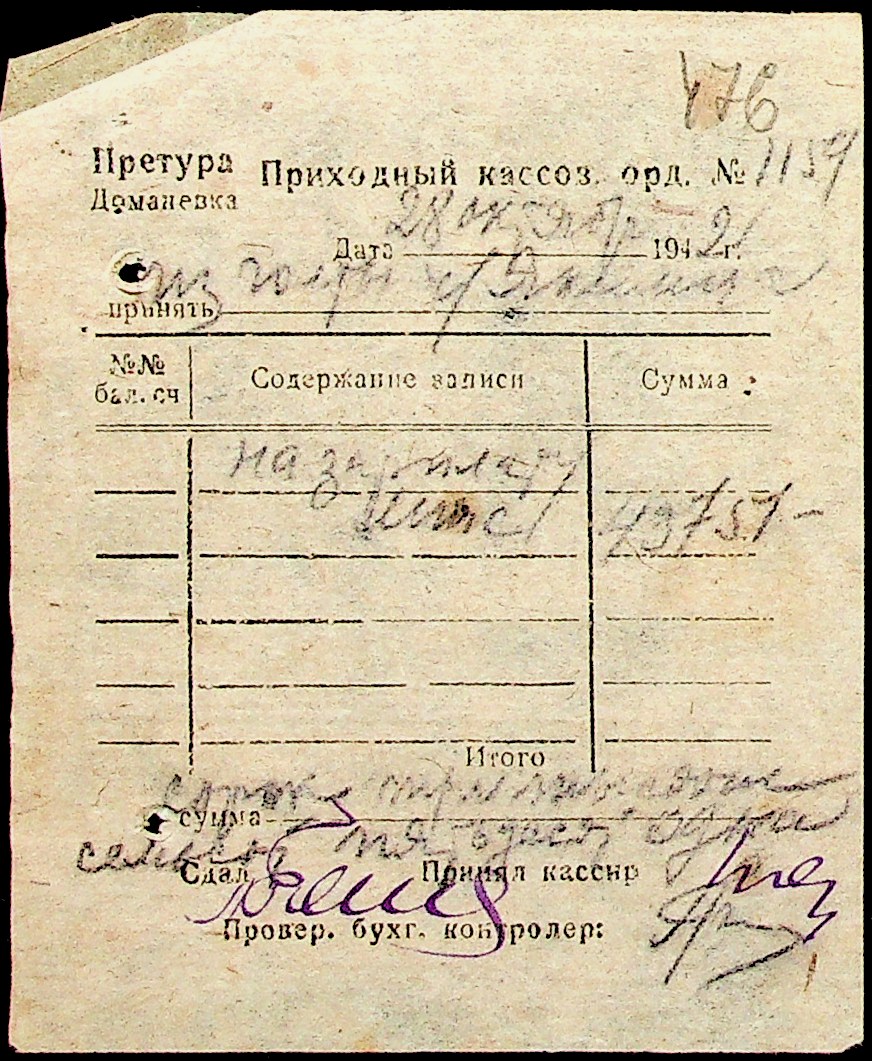 476
Претура
Доманевка
Приходный кассов. орд. № 1159
Дата 28 октября 1942 г.
из
принять
№№ бал. сч
Содержание записи
Сумма
на зарплату
43751 -
Итого
сорок три тысячи
сумма
семьсот пятьдесят один
Сдал
Принял кассир
Провер. бухг. контролер: